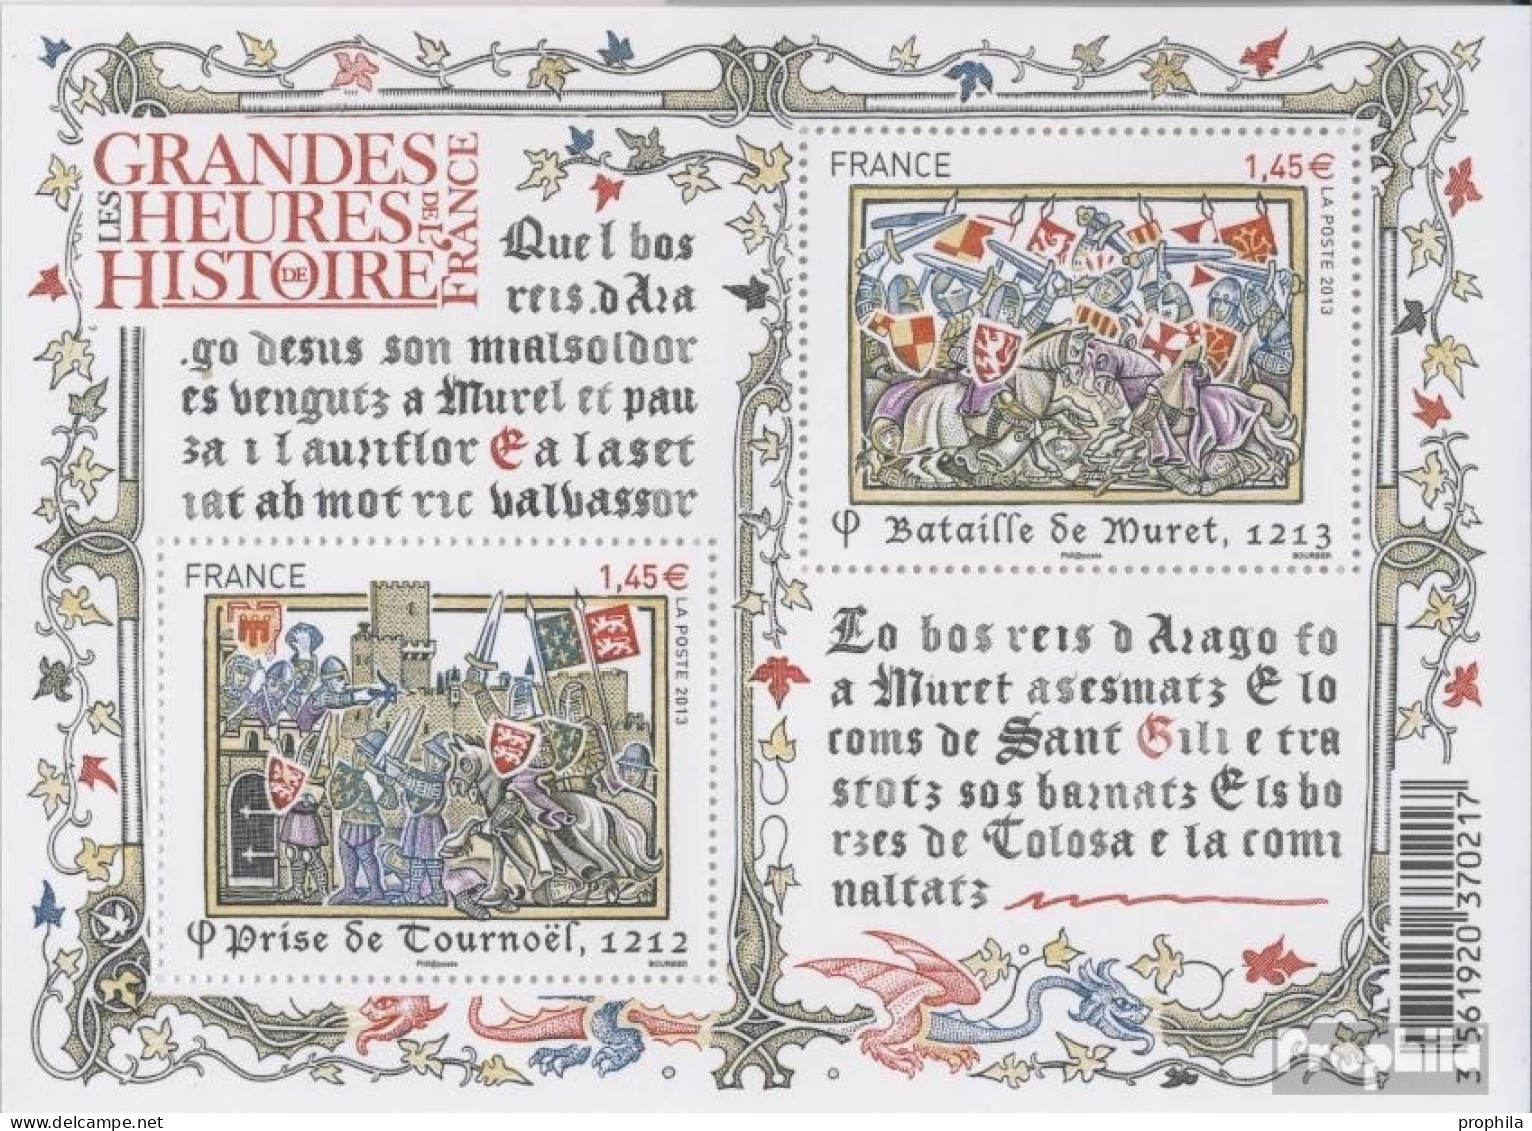 LES GRANDES
HEURES DE L'
HISTOIRE DE FRANCE
Quel bos
reis.d Ara
.go desus son mialsoldor
es vengutz a Murel et pau
za i l auriflor E a laset
iat ab mot ric valvassor
FRANCE 1,45€
LA POSTE 2013
φ Bataille de Muret, 1213
Phil@poste BOURBIER
FRANCE 1,45€
LA POSTE 2013
φ Prise de Tournoël, 1212
Phil@poste BOURBIER
Lo bos reis d Arago fo
a Muret asesmatz E lo
coms de Sant Gili e tra
stotz sos barnatz Els bo
rzes de Tolosa e la comi
naltatz
3 561920 370217
ProphilA
prophila